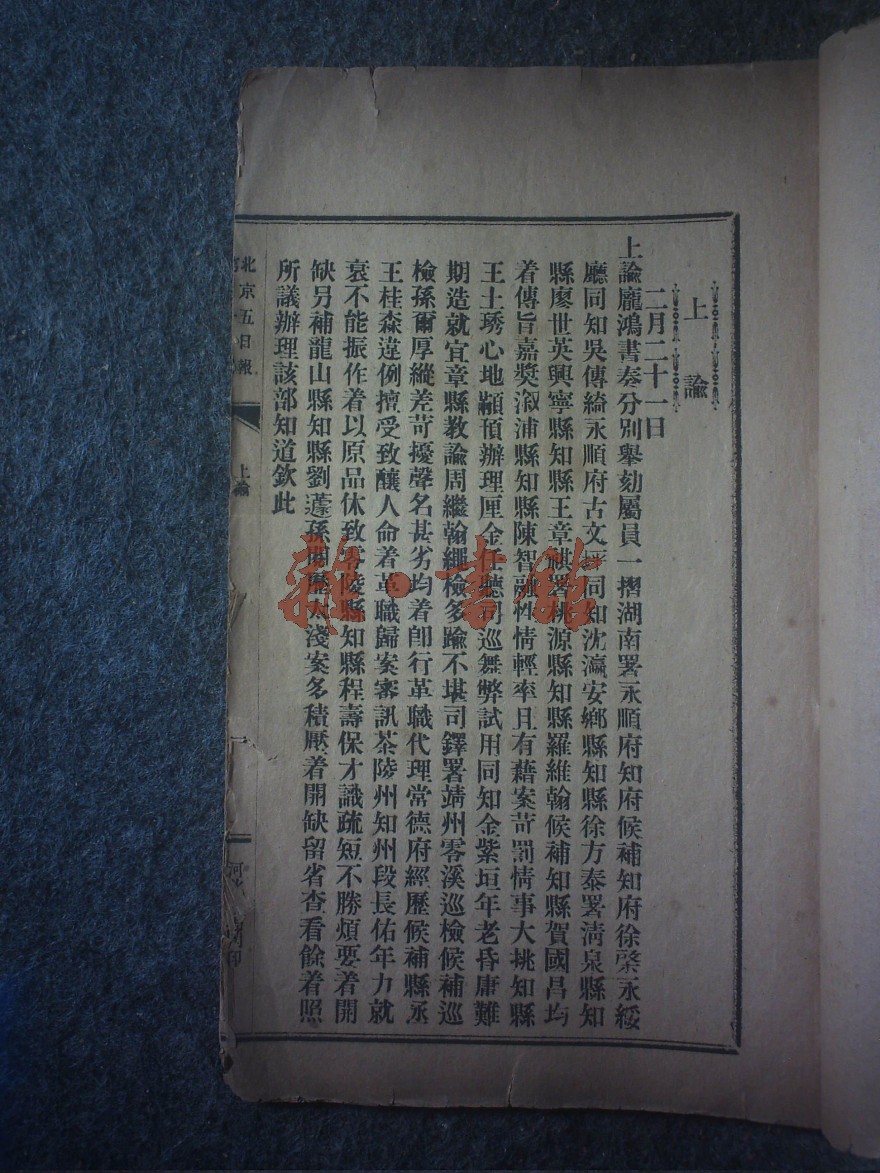 上諭
二月二十一日
上諭龐鴻書奏分別舉劾屬員一摺湖南署永順府知府候補知府徐棨永綏
廳同知吳傳綺永順府古文坪同知沈瀛安鄉縣知縣徐方泰署淸泉縣知
縣廖世英興寧縣知縣王章祺署桃源縣知縣羅維翰候補知縣賀國昌均
着傳旨嘉獎溆浦縣知縣陳智融性情輕率且有藉案苛罰情事大挑知縣
王士琇心地顢頇辦理厘金任聽司巡舞弊試用同知金紫垣年老昏庸難
期造就宜章縣教諭周繼翰繩檢多踰不堪司鐸署靖州零溪巡檢候補巡
檢孫爾厚縱差苛擾聲名甚劣均着卽行革職代理常德府經歷候補縣丞
王桂森違例擅受致釀人命着革職歸案審訊茶陵州知州段長佑年力就
衰不能振作着以原品休致零陵縣知縣程壽保才識疏短不勝煩要着開
缺另補龍山縣知縣劉蘧孫閱歷太淺案多積壓着開缺留省查看餘着照
所議辦理該部知道欽此
北京五日報
上諭
一
雜·書館